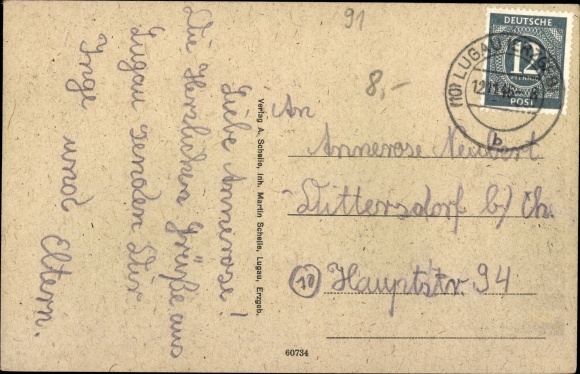 91
8,-
Liebe Annerose!
Die Herzlichen Grüße aus
Lugau senden Dir
Inge und Eltern.
Verlag A. Schelle, Inh. Martin Schelle, Lugau, Erzgeb.
60734
DEUTSCHE
12
PFENNIG
POST
(10) LUGAU (ERZGEB)
b
An
Annerose Neubert
Dittersdorf b/ Ch.
(10) Hauptstr. 94